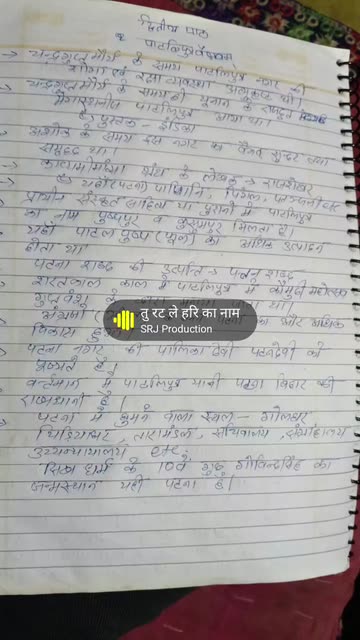 द्वितीय पाठ
पाटलिपुत्रवैभवम्
→ चन्द्रगुप्तमौर्य के समय पाटलिपुत्र नगर की
शोभा एवं रक्षा व्यवस्था अत्युत्कृष्ट थी।
→ चन्द्रगुप्तमौर्य के समय ही यूनान के राजदूत
मेगास्थनीज पाटलिपुत्र आया था।
पुस्तक - इंडिका
→ अशोक के समय इस नगर का वैभव सुन्दर तथा
समृद्ध था।
→ काव्यमीमांसा ग्रंथ के लेखक → राजशेखर
→ प्राचीन संस्कृत साहित्य या पुराणों में पाटलिपुत्र
का नाम पुष्पपुर व कुसुमपुर मिलता है।
→ यहाँ पाटल पुष्प (फूल) का अधिक उत्पादन
होता था
पटना शब्द की उत्पत्ति → पत्तन शब्द
→ शरतकाल काल में पाटलिपुत्र में कौमुदी महोत्सव
तु रट ले हरि का नाम
SRJ Production
का और अधिक
विकास हुआ
→ पटना नगर की पालिका देवी पटनदेवी को
→ वर्तमान में पाटलिपुत्र यानी पटना बिहार की
राजधानी है।
→ पटना में घुमने वाला स्थल - गोलघर
चिड़ियाघर, तारामंडल, सचिवालय, संग्रहालय
उच्चन्यायालय etc.
सिख धर्म के 10वें गुरु गोविन्दसिंह का
जन्मस्थान यही पटना है।